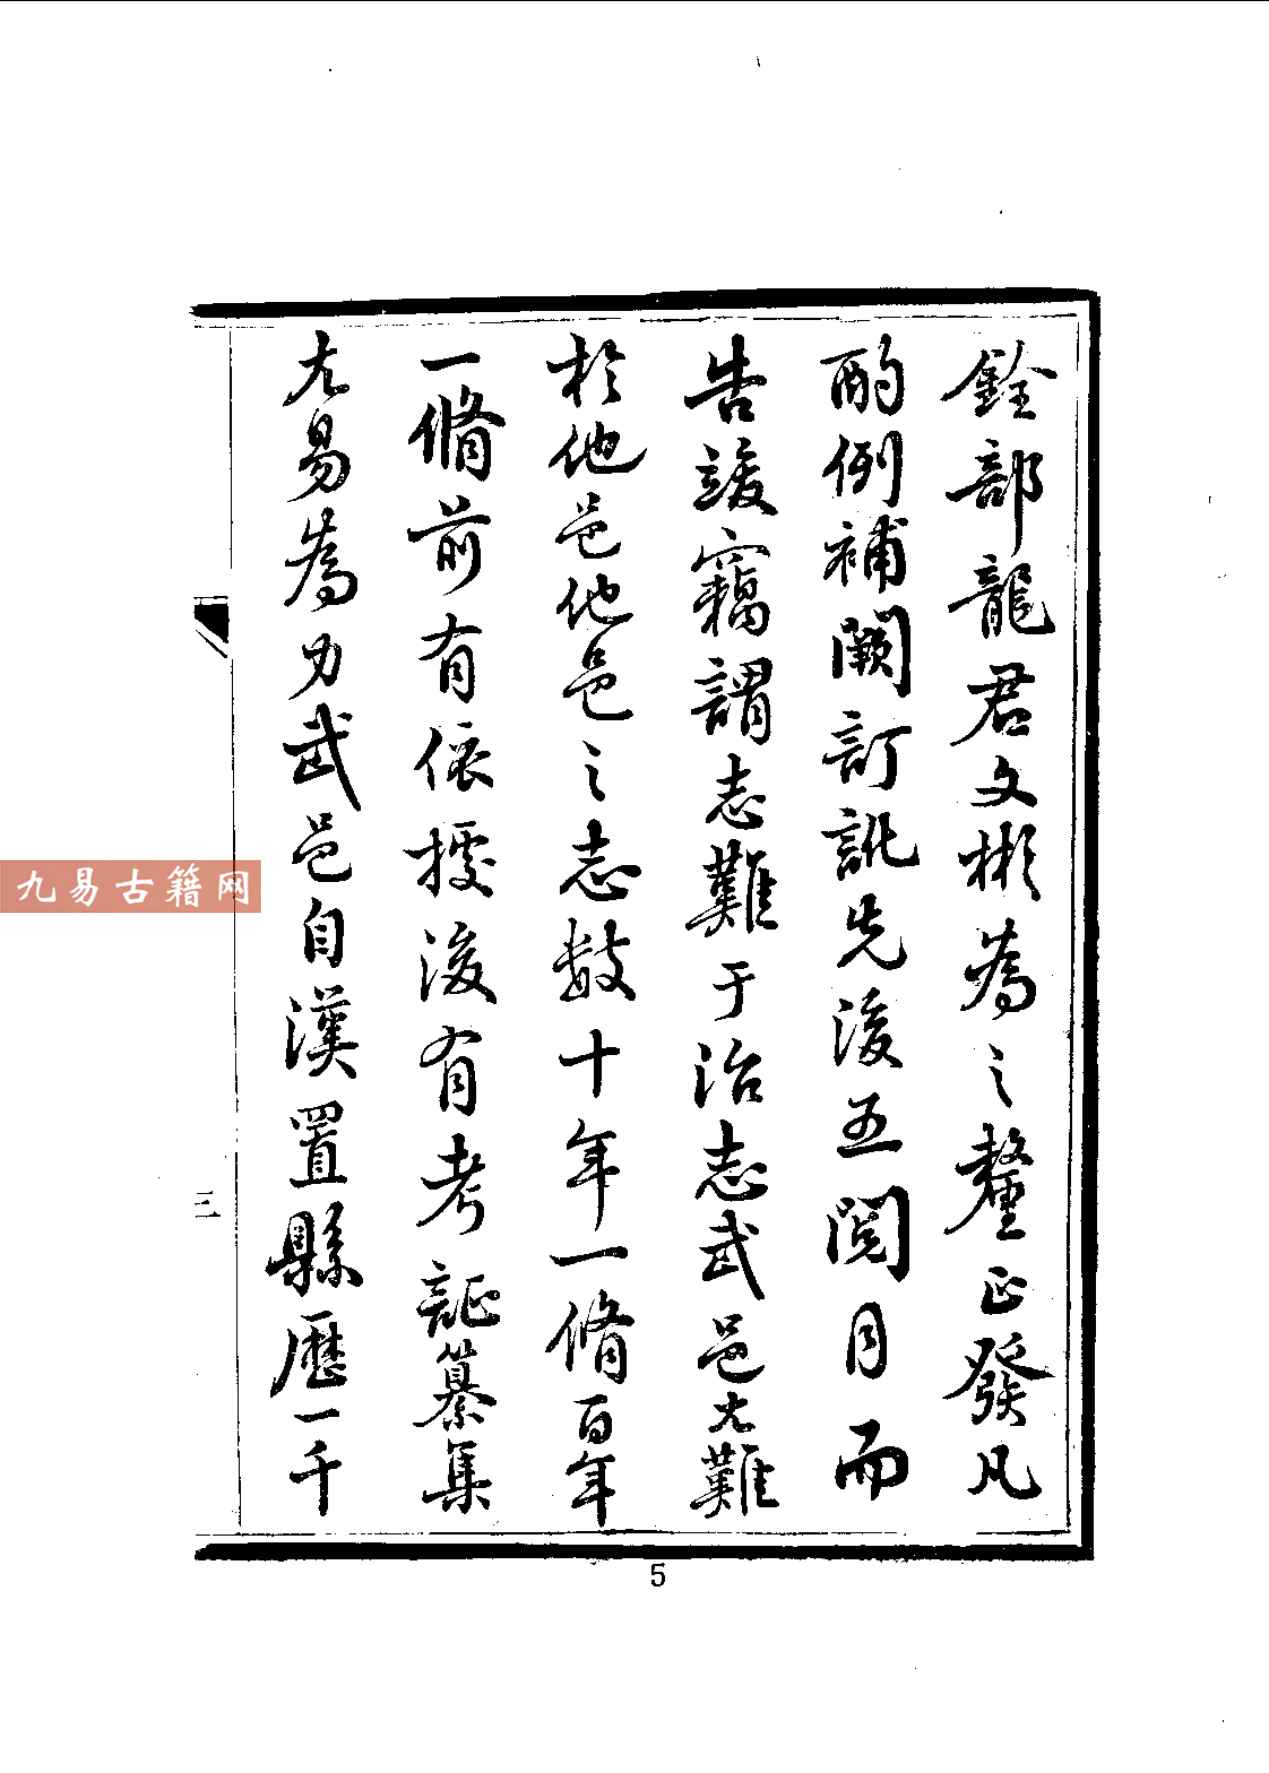 銓部龍君文彬為之釐正發凡
酌例補闕訂訛先後五閱月而
告竣竊謂志難于治志武邑尤難
於他邑他邑之志數十年一脩百年
一脩前有依據後有考証纂集
尤易為力武邑自漢置縣歷一千
三
5
九易古籍网